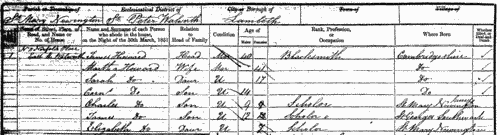 Parish or Township of Ecclesiastical District of Town of Village of
St Mary Newington St Peter Walworth Lambeth
Name of Street, Place, or Road, and Name or No. of House Name and Surname of each Person who abode in the house, on the Night of the 30th March, 1851 Relation to Head of Family Condition Age of Rank, Profession, or Occupation Where Born
James Howard Head Mar 40 Blacksmith Cambridgeshire
Martha Howard Wife Mar Do
Sarah Do Daur U 17 Do
Do Son U 14 Do
Charles Do Son U 9 Scholar St Mary Newington Surrey
James Do Son U 12 Scholar St Georges Southwark
Elizabeth Do Daur U 7 Scholar St Mary Newington